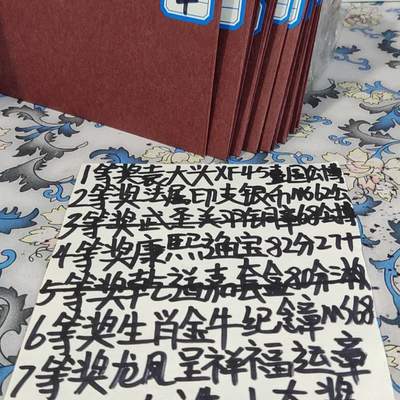 1等奖袁大头XF45壹圆公博
2等奖法属印支银币MS62公
3等奖武圣关羽铜章68公博
4等奖康熙通宝82分27+
5等奖乾道嘉套全80分
6等奖生肖金牛纪念章MS68
7等奖龙凤呈祥福运章